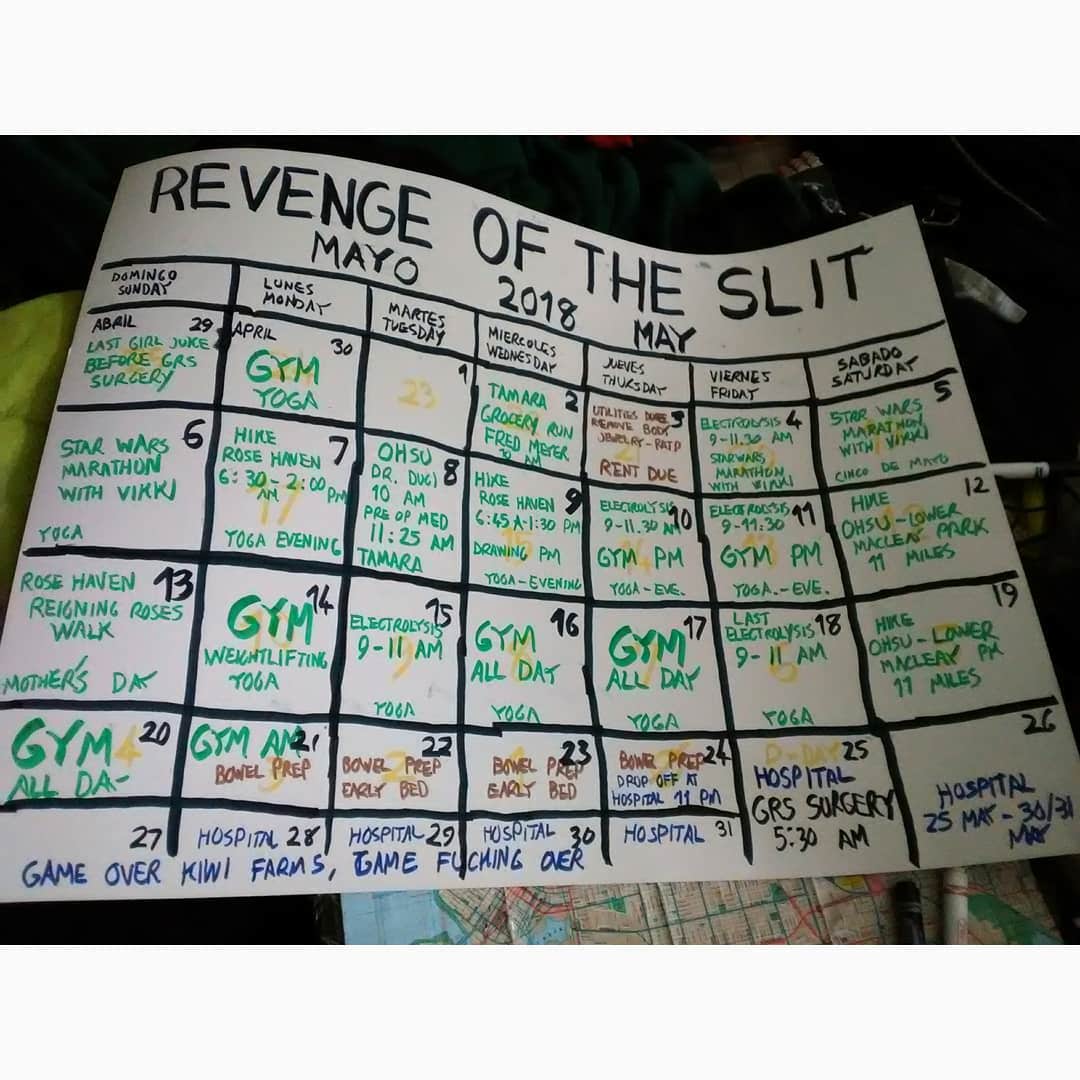 REVENGE OF THE SLIT
MAYO 2018 MAY
DOMINGO
SUNDAY
LUNES
MONDAY
MARTES
TUESDAY
MIERCOLES
WEDNESDAY
JUEVES
THURSDAY
VIERNES
FRIDAY
SABADO
SATURDAY
ABRIL 29
LAST GIRL JUICE
BEFORE GRS
SURGERY
APRIL 30
GYM
YOGA
1
23
TAMARA 2
GROCERY RUN
FRED MEYER
AM
UTILITIES DUE 3
REMOVE BODY
JEWELRY-
RENT DUE
ELECTROLYSIS 4
9-11.30 AM
STARWARS
MARATHON
WITH VIKKI
5
STAR WARS
MARATHON
WITH VIKKI
CINCO DE MAYO
6
STAR WARS
MARATHON
WITH VIKKI
YOGA
HIKE 7
ROSE HAVEN
6:30-2:00
AM PM
17
YOGA EVENING
OHSU 8
DR. DUGI
10 AM
PRE OP MED
11:25 AM
TAMARA
HIKE
ROSE HAVEN 9
6:45 A-1:30 PM
DRAWING PM
YOGA-EVENING
ELECTROLYSIS 10
9-11.30 AM
GYM PM
YOGA-EVE.
ELECTROLYSIS 11
9-11:30
GYM PM
YOGA.-EVE.
12
HIKE
OHSU-LOWER
MACLEAY PARK
11 MILES
ROSE HAVEN 13
REIGNING ROSES
WALK
MOTHER'S DAY
14
GYM
WEIGHTLIFTING
YOGA
15
ELECTROLYSIS
9-11 AM
YOGA
16
GYM
ALL DAY
YOGA
17
GYM
ALL DAY
YOGA
LAST
ELECTROLYSIS 18
9-11 AM
YOGA
19
HIKE
OHSU-LOWER
MACLEAY PK
11 MILES
GYM 4 20
ALL DA-
GYM AM 21
BOWEL PREP
22
BOWEL PREP
EARLY BED
23
BOWEL PREP
EARLY BED
BOWEL PREP 24
DROP OFF AT
HOSPITAL 11 PM
D-DAY 25
HOSPITAL
GRS SURGERY
5:30 AM
26
HOSPITAL
25 MAY-30/31
MAY
27
HOSPITAL 28
HOSPITAL 29
HOSPITAL 30
HOSPITAL 31
GAME OVER KIWI FARMS, GAME FUCHING OVER